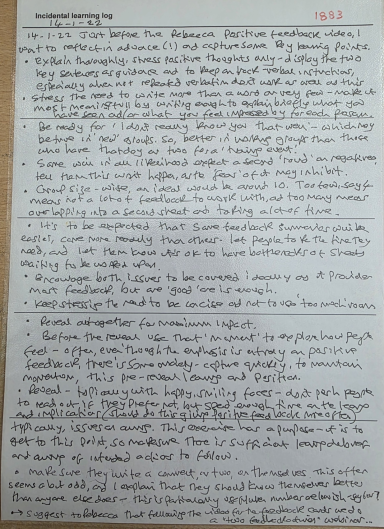 Incidental learning log
14-1-22
1883
14-1-22 Just before the Rebecca positive feedback video, I
want to reflect in advance (!) and capture some key learning points.
• Explain thoroughly, stress positive thoughts only - display the two
key sentences as guidance and to keep on track - verbal instructions,
especially when not repeated verbatim don't work as well as this
• Stress the need to write more than a word or very few - make it
most meaningful by writing enough to explain briefly what you
have seen and/or what you feel impressed by for each person.
• Be ready for 'I don't really know you that well' - which may
be true in 'new' groups. So, better in working groups than those
who have that day or two for a 'trading event'.
• Some will in all likelihood expect a second 'round' on negatives,
tell them this won't happen, as the fear of it may inhibit.
• Group size - wise, an ideal would be around 10. Too few, say 4
means not a lot of feedback to work with, and too many means
overlapping into a second sheet and taking a lot of time.
• It's to be expected that some feedback summaries will be
easier, come more readily than others. Let people take the time they
need, and let them know it's ok to have bottlenecks of sheets
waiting to be worked upon.
• Encourage both issues to be covered ideally as it provides
most feedback, but one 'good' one is enough.
• Keep stressing the need to be concise and not to use too much room
• Reveal altogether for maximum impact.
• Before the reveal use that 'moment' to explore how people
feel - often, even though the emphasis is entirely on positive
feedback, there is some anxiety - capture quickly, to maintain
momentum, this pre-reveal learning and position.
• Reveal - typically with happy, smiling faces - don't push people
to read out if they prefer not, but spend enough time on the learning
and implications, should do this giving positive feedback more often
typically, issues onawys. This exercise has a purpose - it is to
get to this point, so make sure there is sufficient learning
and awys of intended actions to follow.
• Make sure they write a comment, or two, on themselves. This often
seems a bit odd, and I explain that they should know themselves better
than anyone else does - this is particularly useful
→ Suggest to Rebecca that following the video for the feedback cards we do
a 'two feedback ways' webinar...